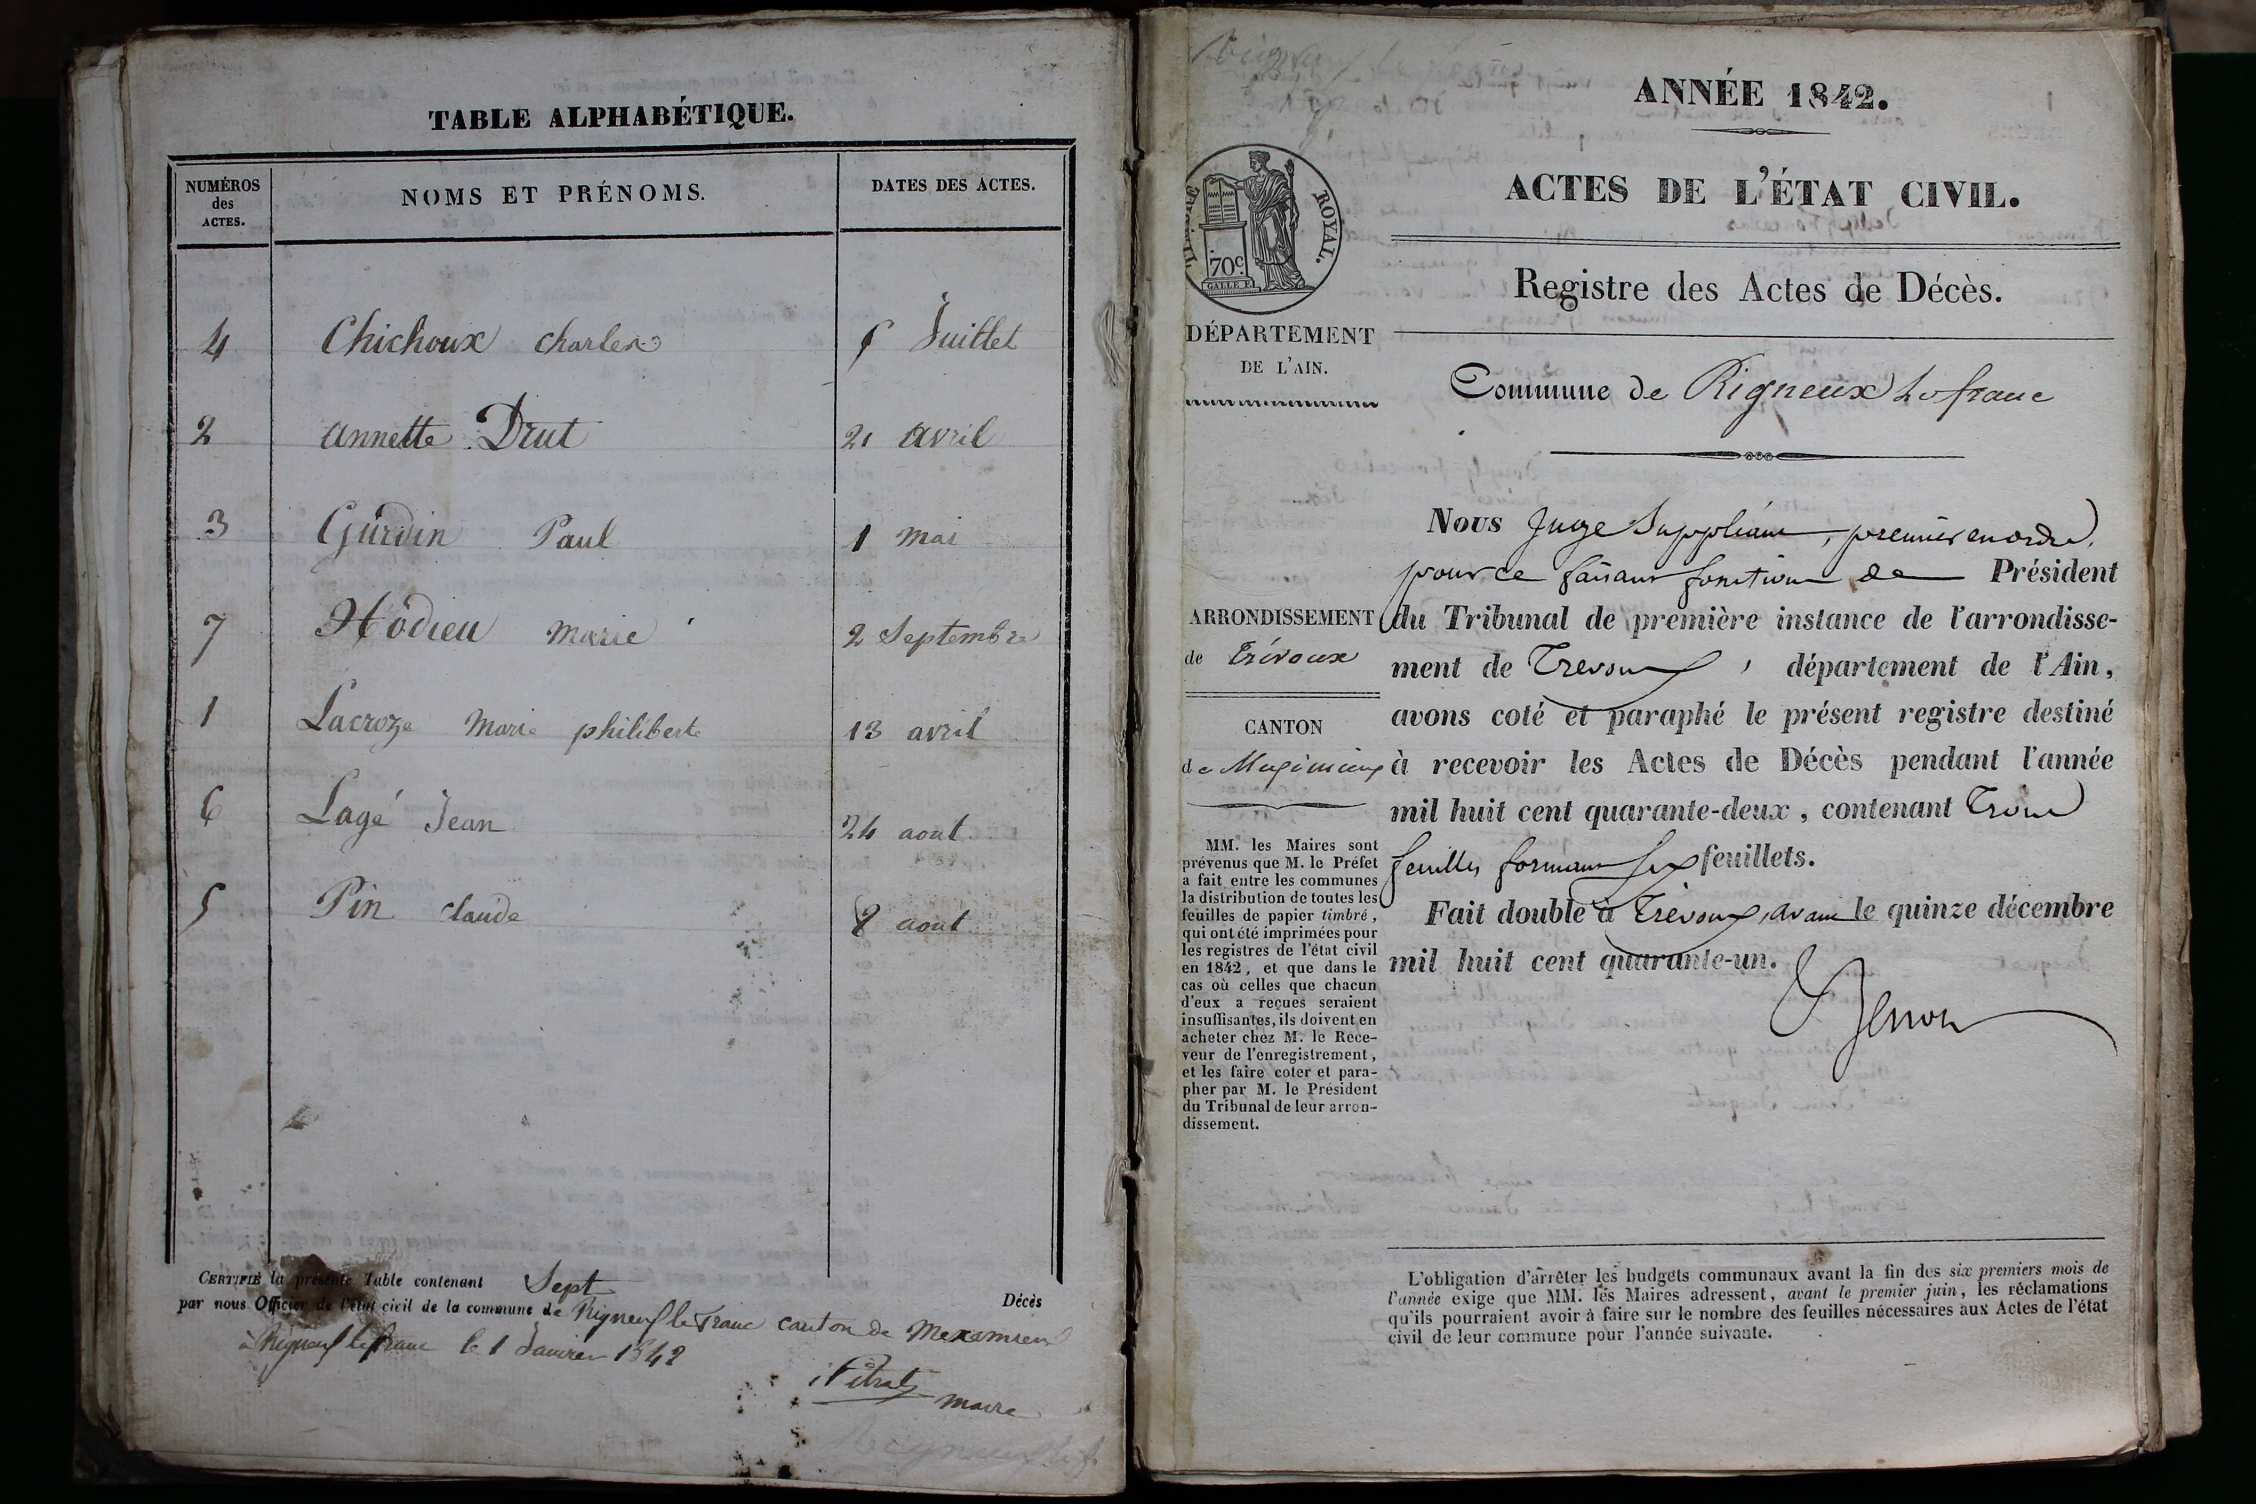 TABLE ALPHABÉTIQUE.
NUMÉROS des ACTES. NOMS ET PRÉNOMS. DATES DES ACTES.
4 Chichoux charles Juillet
2 annette Drut 21 avril
3 Gurdin Paul 1 mai
7 Hodieu marie 2 Septembre
1 Lacroze Marie philiberte 13 avril
6 Lagé Jean 24 aout
5 Pin claude 8 aout
CERTIFIÉ la présente Table contenant Sept Décès
par nous Officier de l'état civil de la commune de Rigneux le Franc canton de Meximieux
à Rigneux le franc le 1 Janvier 1842
maire
ANNÉE 1842.
ACTES DE L'ÉTAT CIVIL.
Registre des Actes de Décès.
Commune de Rigneux Le franc
TIMBRE ROYAL.
70c.
GALLE F.
DÉPARTEMENT
DE L'AIN.
ARRONDISSEMENT
de Trévoux
CANTON
de Meximieux
MM. les Maires sont
prévenus que M. le Préfet
a fait entre les communes
la distribution de toutes les
feuilles de papier timbré,
qui ont été imprimées pour
les registres de l'état civil
en 1842, et que dans le
cas où celles que chacun
d'eux a reçues seraient
insuffisantes, ils doivent en
acheter chez M. le Rece-
veur de l'enregistrement,
et les faire coter et para-
pher par M. le Président
du Tribunal de leur arron-
dissement.
Nous Juge Suppléant, premier en ordre,
pour ce faisant fonction de Président
du Tribunal de première instance de l'arrondisse-
ment de Trevoux, département de l'Ain,
avons coté et paraphé le présent registre destiné
à recevoir les Actes de Décès pendant l'année
mil huit cent quarante-deux, contenant Trois
feuilles formant six feuillets.
Fait double à Trévoux, avant le quinze décembre
mil huit cent quarante-un.
L'obligation d'arrêter les budgets communaux avant la fin des six premiers mois de
l'année exige que MM. les Maires adressent, avant le premier juin, les réclamations
qu'ils pourraient avoir à faire sur le nombre des feuilles nécessaires aux Actes de l'état
civil de leur commune pour l'année suivante.